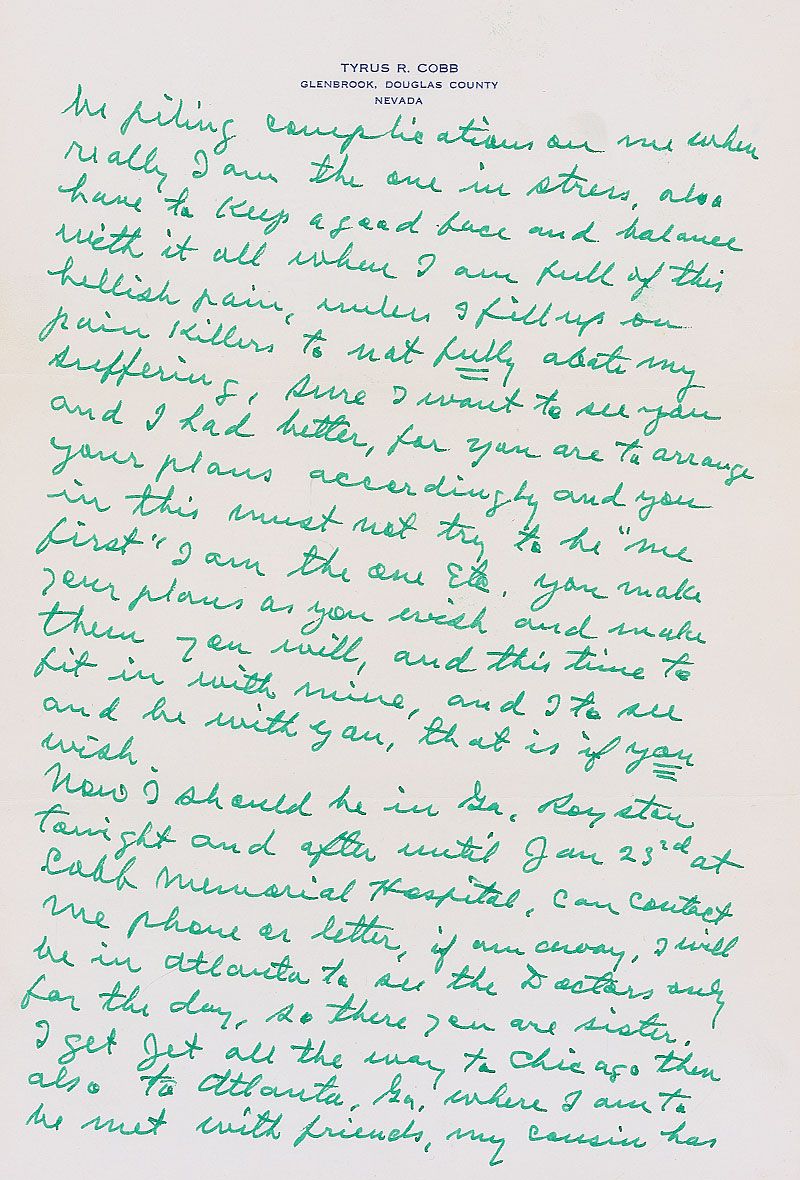 TYRUS R. COBB
GLENBROOK, DOUGLAS COUNTY
NEVADA
be piling complications on me when
really I am the one in stress, also
have to Keep a good face and balance
with it all when I am full of this
hellish pain, unless I fill up on
pain Killers to not fully abate my
suffering, sure I want to see you
and I had better, for you are to arrange
your plans accordingly and you
in this must not try to be "me
first" I am the one Etc. you make
your plans as you wish and make
them you will, and this time to
fit in with mine, and I to see
and be with you, that is if you
wish
Now I should be in Ga, Royston
tonight and after until Jan 23rd at
Cobb Memorial Hospital, can contact
me phone or letter, if am away, I will
be in Atlanta to see the Doctors only
for the day, so there you are sister.
I get Jet all the way to Chicago then
also to Atlanta, Ga, where I am to
be met with friends, my cousin has